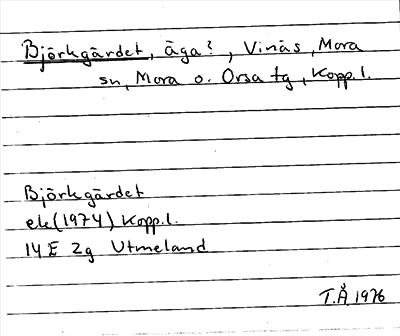 Björkgärdet, äga?, Vinäs, Mora
sn, Mora o. Orsa tg, Kopp.l.
Björkgärdet
ek(1974) Kopp.l.
14 E 2g Utmeland
T.Å 1976